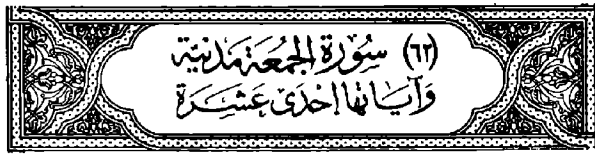 (٦٢) سُورَة الجُمعَة مَدنيَّة
وَآيَاتهَا إحْدَى عَشَرَة